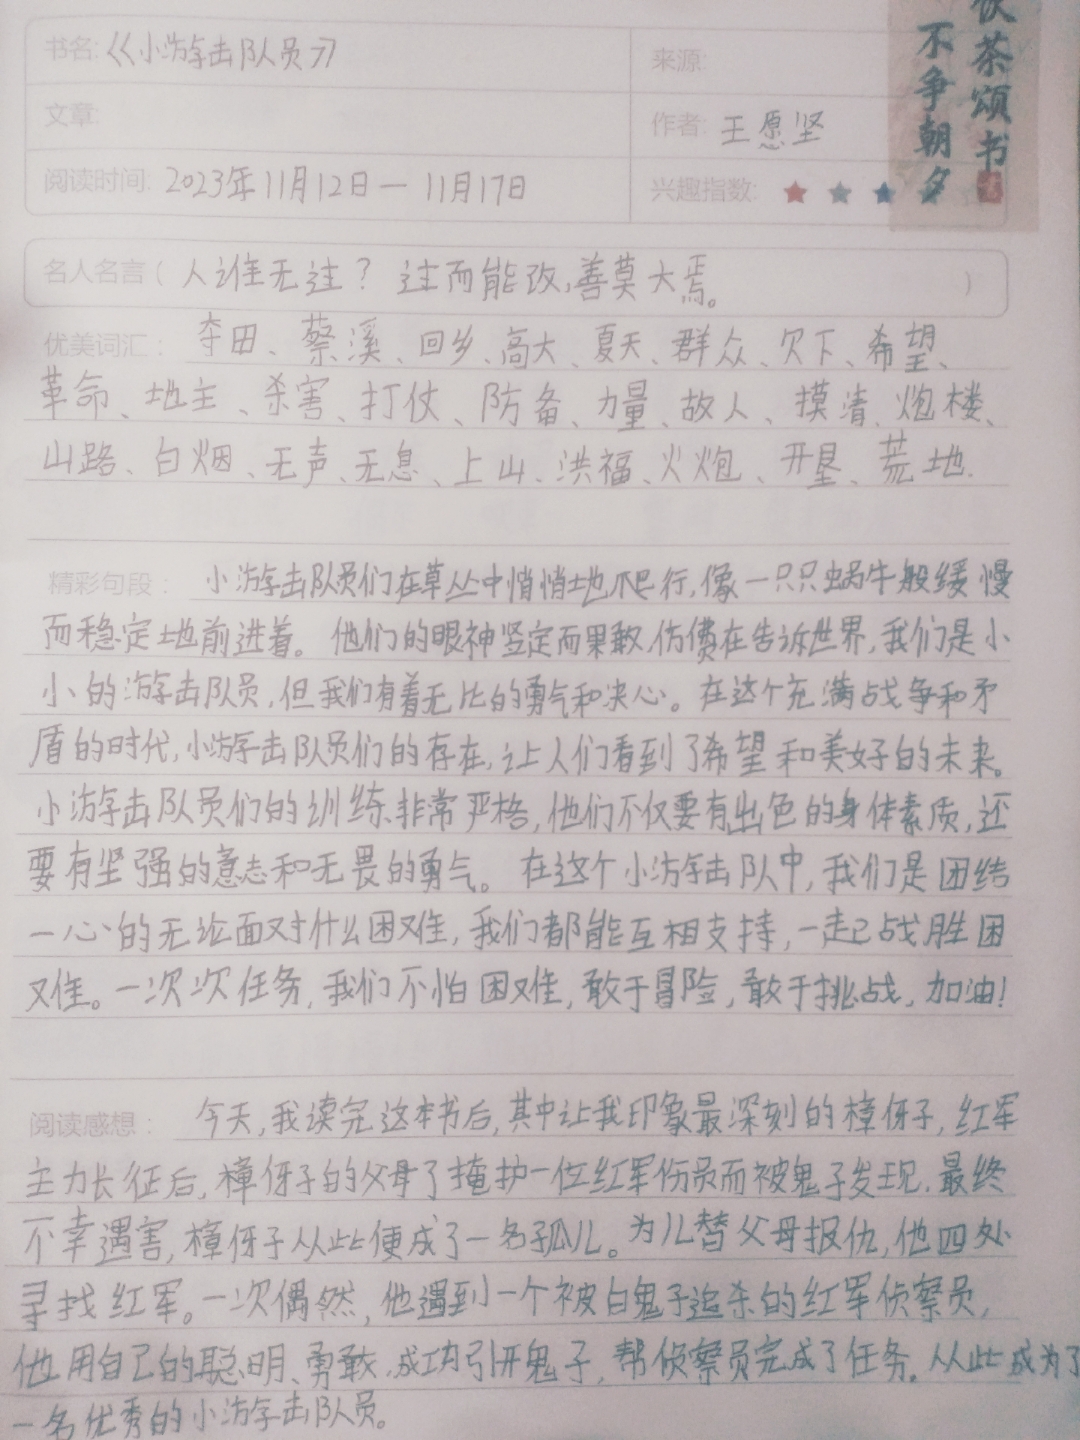 书名:《小游击队员》
来源:
文章:
作者: 王愿坚
阅读时间: 2023年11月12日—11月17日
兴趣指数:
茶颂书
不争朝夕
名人名言( 人谁无过？过而能改,善莫大焉。 )
优美词汇: 夺田、蔡溪、回乡、高大、夏天、群众、欠下、希望、
革命、地主、杀害、打仗、防备、力量、故人、摸清、炮楼、
山路、白烟、无声、无息、上山、洪福、火炮、开垦、荒地.
精彩句段: 小游击队员们在草丛中悄悄地爬行,像一只只蜗牛般缓慢
而稳定地前进着。他们的眼神坚定而果敢,仿佛在告诉世界,我们是小
小的游击队员,但我们有着无比的勇气和决心。在这个充满战争和矛
盾的时代,小游击队员们的存在,让人们看到了希望和美好的未来。
小游击队员们的训练非常严格,他们不仅要有出色的身体素质,还
要有坚强的意志和无畏的勇气。在这个小游击队中,我们是团结
一心的无论面对什么困难,我们都能互相支持,一起战胜困
难。一次次任务,我们不怕困难,敢于冒险,敢于挑战,加油!
阅读感想: 今天,我读完这本书后,其中让我印象最深刻的樟伢子,红军
主力长征后,樟伢子的父母了掩护一位红军伤员而被鬼子发现.最终
不幸遇害,樟伢子从此便成了一名孤儿。为儿替父母报仇,他四处
寻找红军。一次偶然,他遇到一个被白鬼子追杀的红军侦察员,
他用自己的聪明、勇敢,成功引开鬼子,帮侦察员完成了任务.从此成为了
一名优秀的小游击队员。